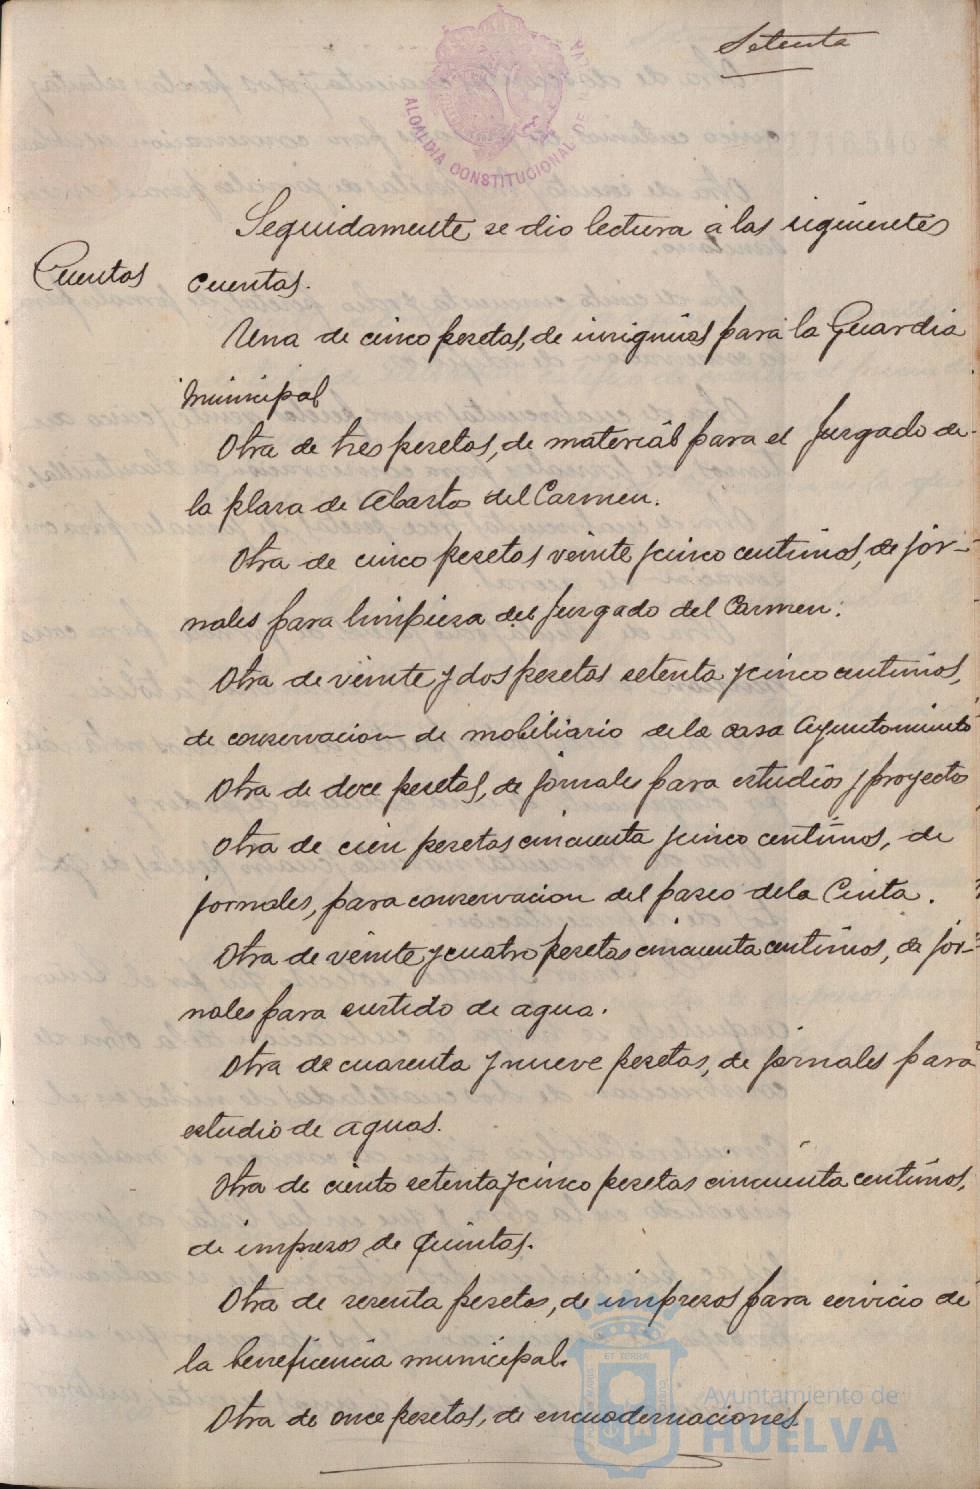 Setenta
ALCALDIA CONSTITUCIONAL DE
Seguidamente se dio lectura á las siguientes
Cuentas
cuentas.
Una de cinco pesetas, de insignias para la Guardia
Municipal
Otra de tres pesetas, de material para el Juzgado de
la plaza de Abastos del Carmen.
Otra de cinco pesetas veinte y cinco centimos, de jor-
nales para limpieza del Juzgado del Carmen.
Otra de veinte y dos pesetas setenta y cinco centimos,
de conservacion de mobiliario de la casa Ayuntamiento
Otra de doce pesetas, de jornales para estudios y proyectos
Otra de cien pesetas cincuenta y cinco centimos, de
jornales, para conservacion del paseo de la Cinta.
Otra de veinte y cuatro pesetas cincuenta centimos, de jor-
nales para surtido de agua.
Otra de cuarenta y nueve pesetas, de jornales para
estudio de aguas.
Otra de ciento setenta y cinco pesetas cincuenta centimos,
de impresos de Quintas.
Otra de sesenta pesetas, de impresos para servicio de
la beneficencia municipal.
Otra de once pesetas, de encuadernaciones.
Ayuntamiento de
HUELVA